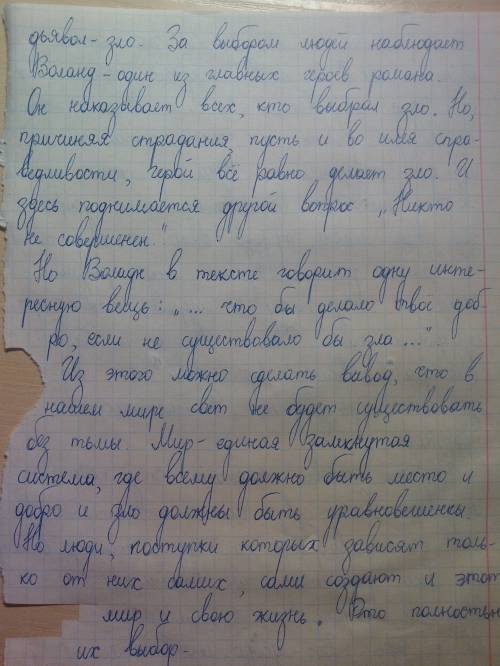 дьявол - зло. За выбором людей наблюдает
Воланд - один из главных героев романа.
Он наказывает всех, кто выбрал зло. Но,
причиняя страдания, пусть и во имя спра-
ведливости, герой всё равно делает зло. И
здесь поднимается другой вопрос „Никто
не совершенен."
Но Воланд в тексте говорит одну инте-
ресную вещь: „... что бы делало твоё доб-
ро, если не существовало бы зла...".
Из этого можно сделать вывод, что в
нашем мире свет не будет существовать
без тьмы. Мир - единая замкнутая
система, где всему должно быть место и
добро и зло должны быть уравновешены.
Но люди, поступки которых зависят толь-
ко от них самих, сами создают и этот
мир и свою жизнь. Это полностью
их выбор -